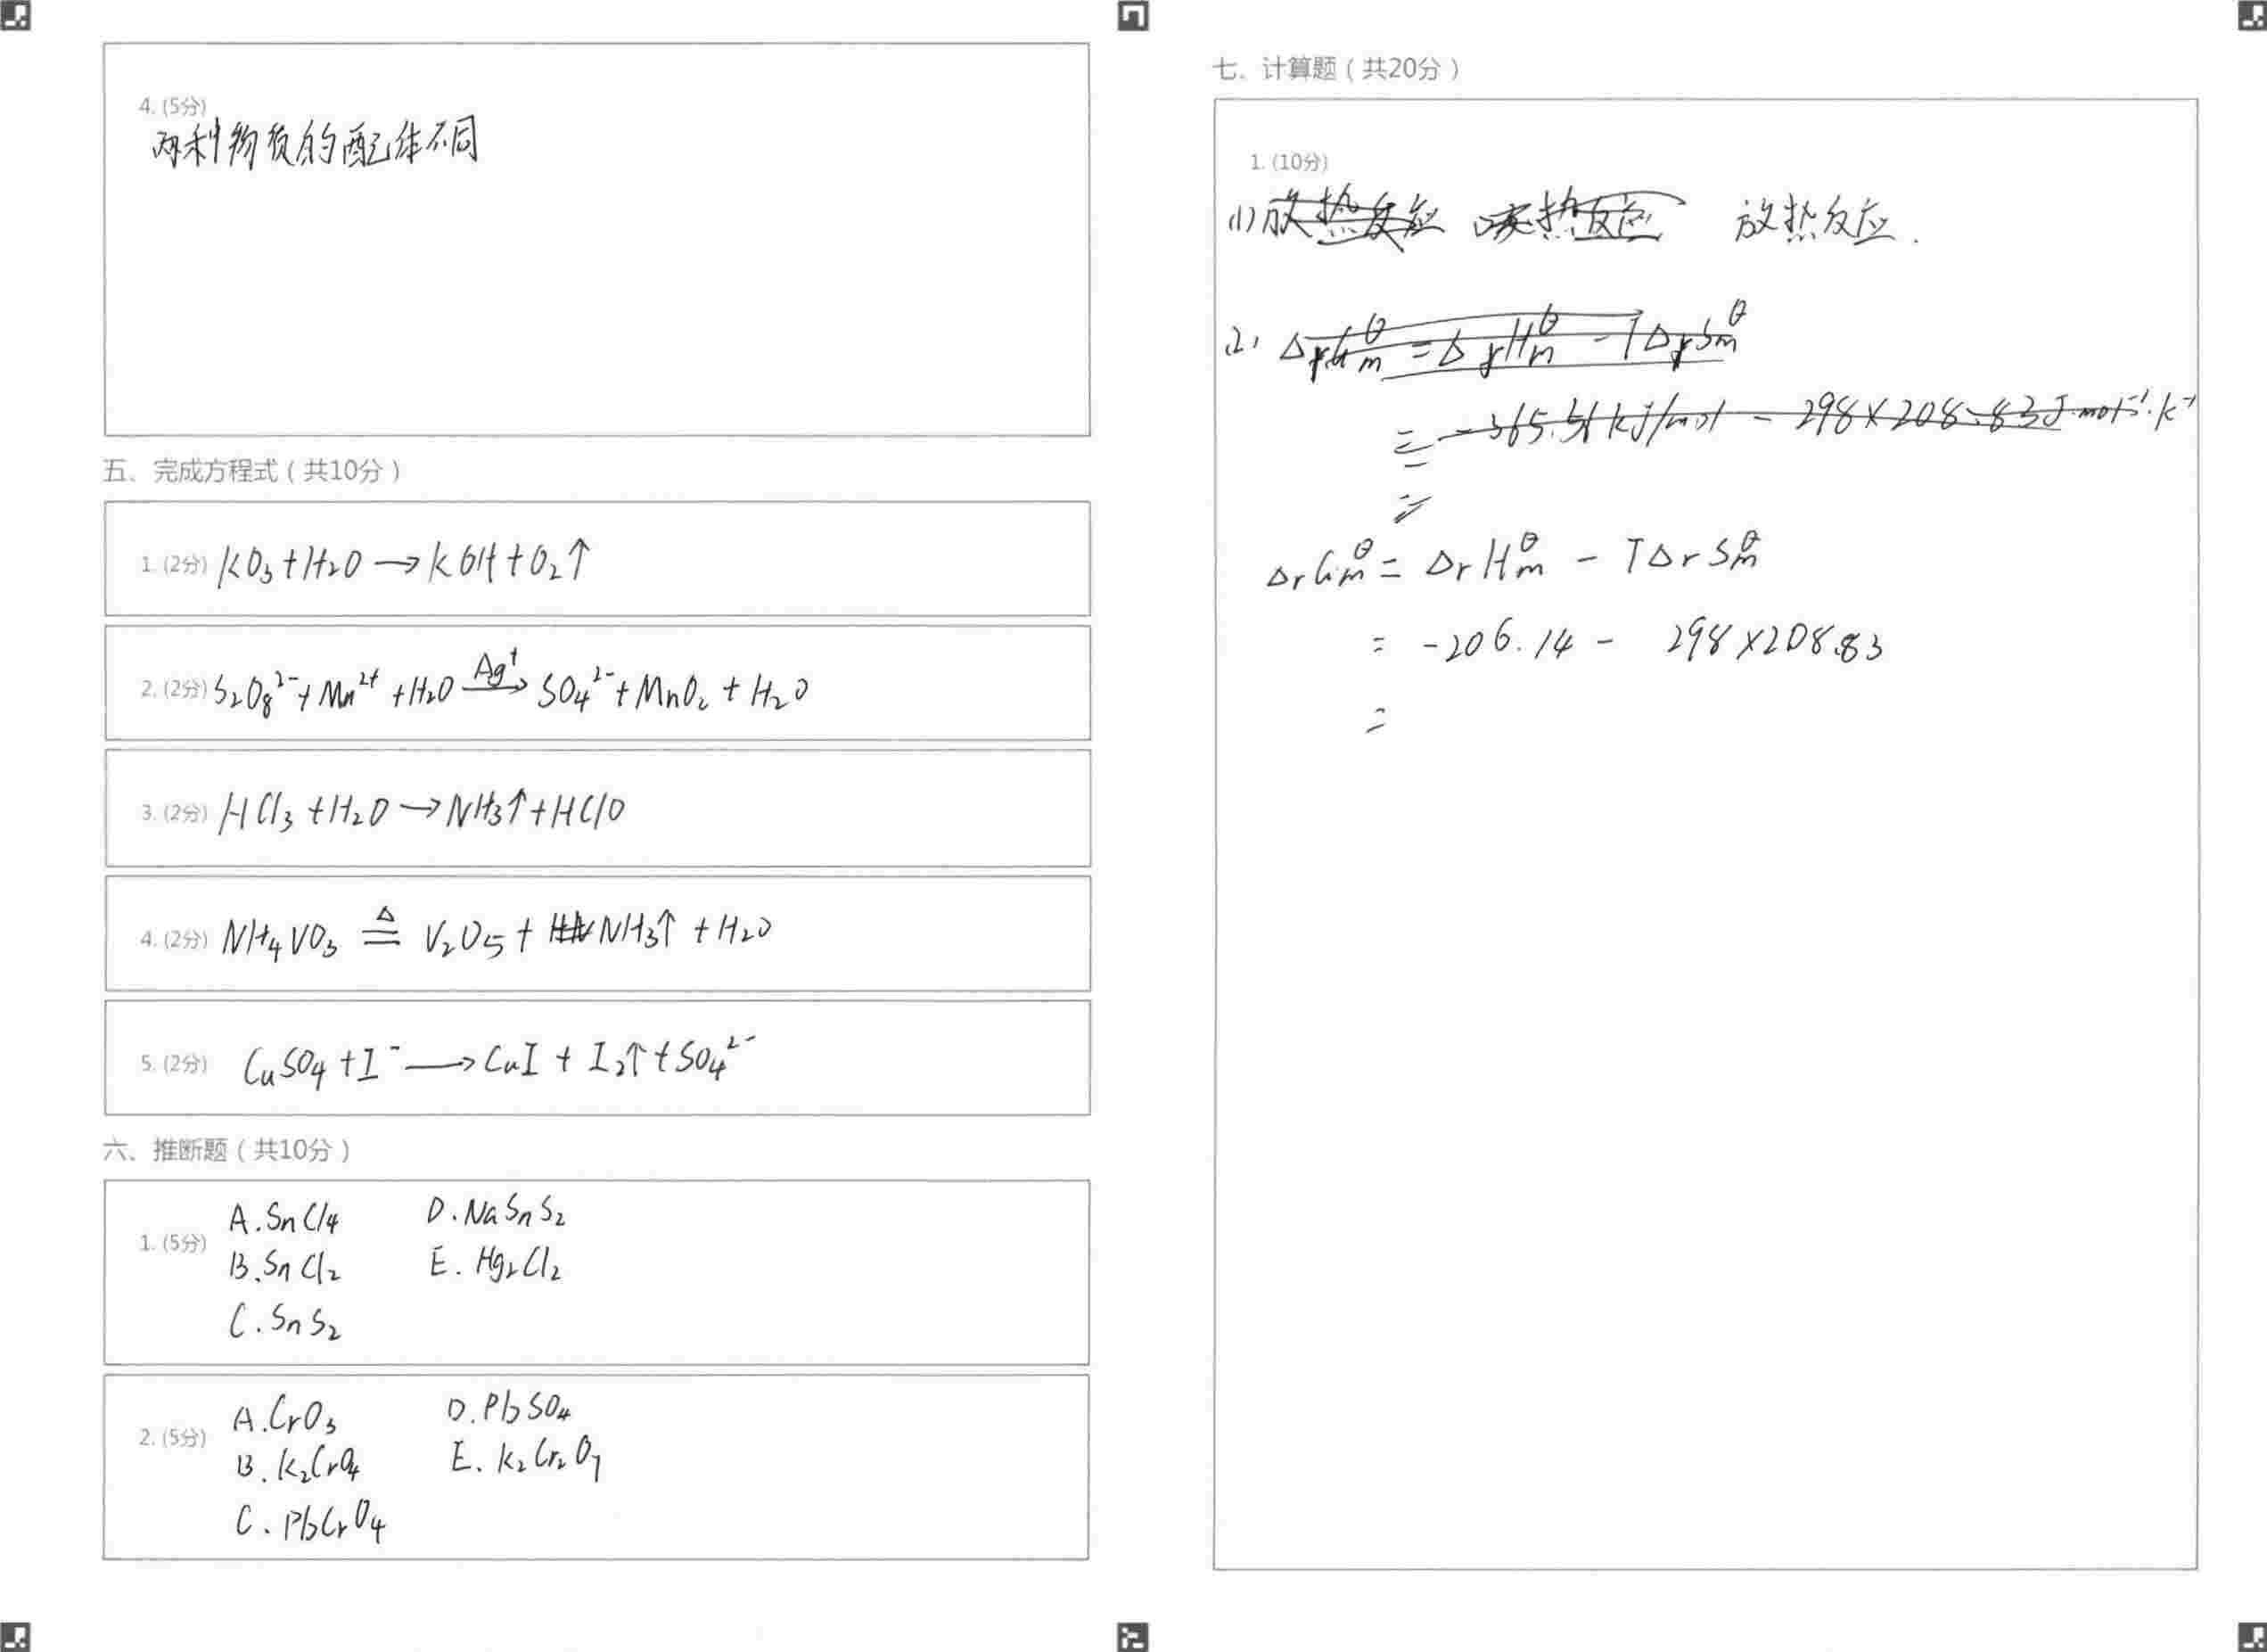 4. (5分)
两种物质的配体不同
五、完成方程式（共10分）
1. (2分) KO₃+H₂O→KOH+O₂↑
2. (2分) S₂O₈²⁻+Mn²⁺+H₂O —Ag⁺→ SO₄²⁻+MnO₂+H₂O
3. (2分) HCl₃+H₂O→NH₃↑+HClO
4. (2分) NH₄VO₃ ≜ V₂O₅+NH₃↑+H₂O
5. (2分) CuSO₄+I⁻→CuI+I₂↑+SO₄²⁻
六、推断题（共10分）
1. (5分)
A.SnCl₄ D.NaSnS₂
B.SnCl₂ E.Hg₂Cl₂
C.SnS₂
2. (5分)
A.CrO₃ D.PbSO₄
B.K₂CrO₄ E.K₂Cr₂O₇
C.PbCrO₄
七、计算题（共20分）
1. (10分)
(1) 放热反应 吸热反应 放热反应.
(2) ΔrGmθ=ΔrHmθ-TΔrSmθ
= -365.51kJ/mol - 298×208.83J·mol⁻¹·K⁻¹
=
ΔrGmθ=ΔrHmθ-TΔrSmθ
= -206.14 - 298×208.83
=